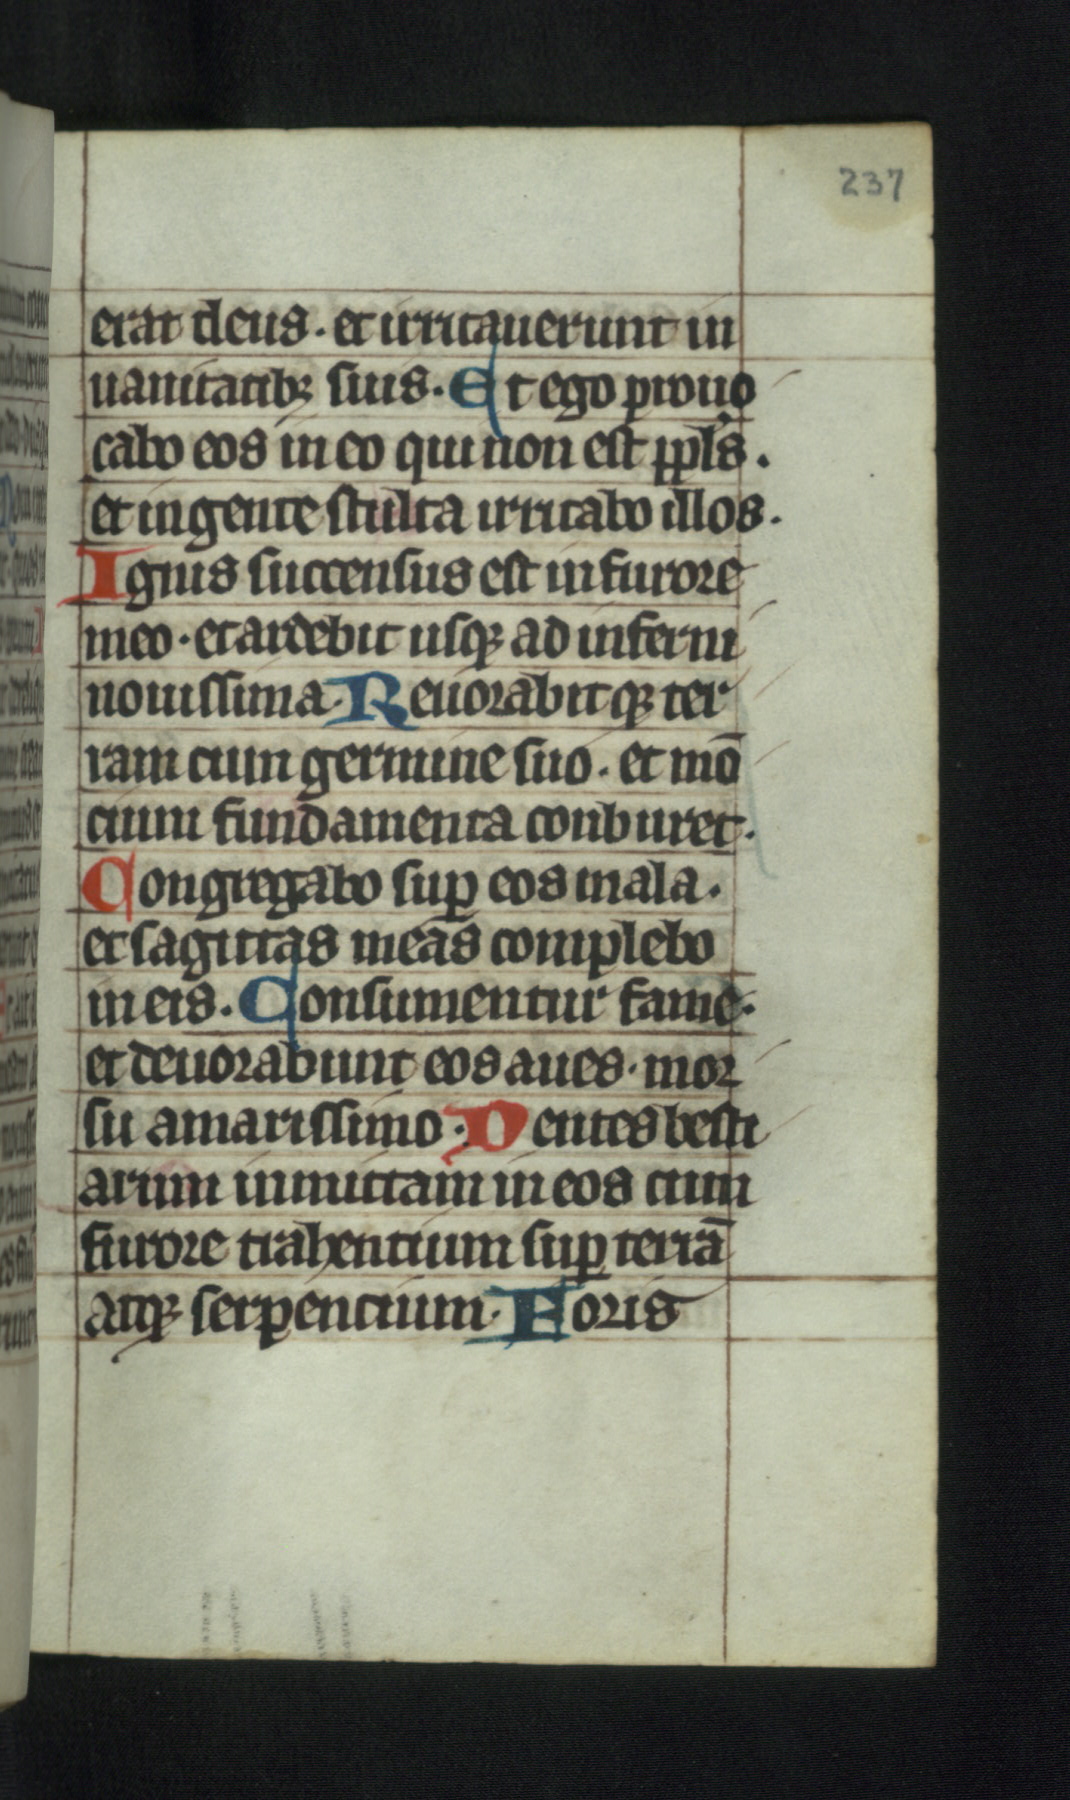 237
erat deus. et irritauerunt in
uanitatibꝫ suis. Et ego prouo
cabo eos in eo qui non est ppl's.
et in gente stulta irritabo illos.
Ignis succensus est in furore
meo. et ardebit usqꝫ ad inferni
nouissima. Reuorabitqꝫ ter
ram cum germine suo. et mō
cium fundamenta conburet.
Congregabo suꝑ eos mala.
et sagittas meas complebo
in eis. Consumentur fame.
et deuorabunt eos aues. mor
su amarissimo. Dentes besti
arum inmittam in eos cum
furore trahentium suꝑ terrā
atqꝫ serpencium. Foris